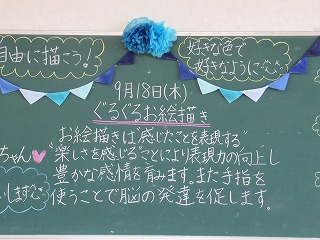 自由に描こう!
好きな色で
好きなように
9月18日(木)
ぐるぐるお絵描き
お絵描きは"感じたことを表現する"
"楽しさを感じる"ことにより表現力の向上し
豊かな感情を育みます。また手指を
使うことで脳の発達を促します。
ちゃん
します